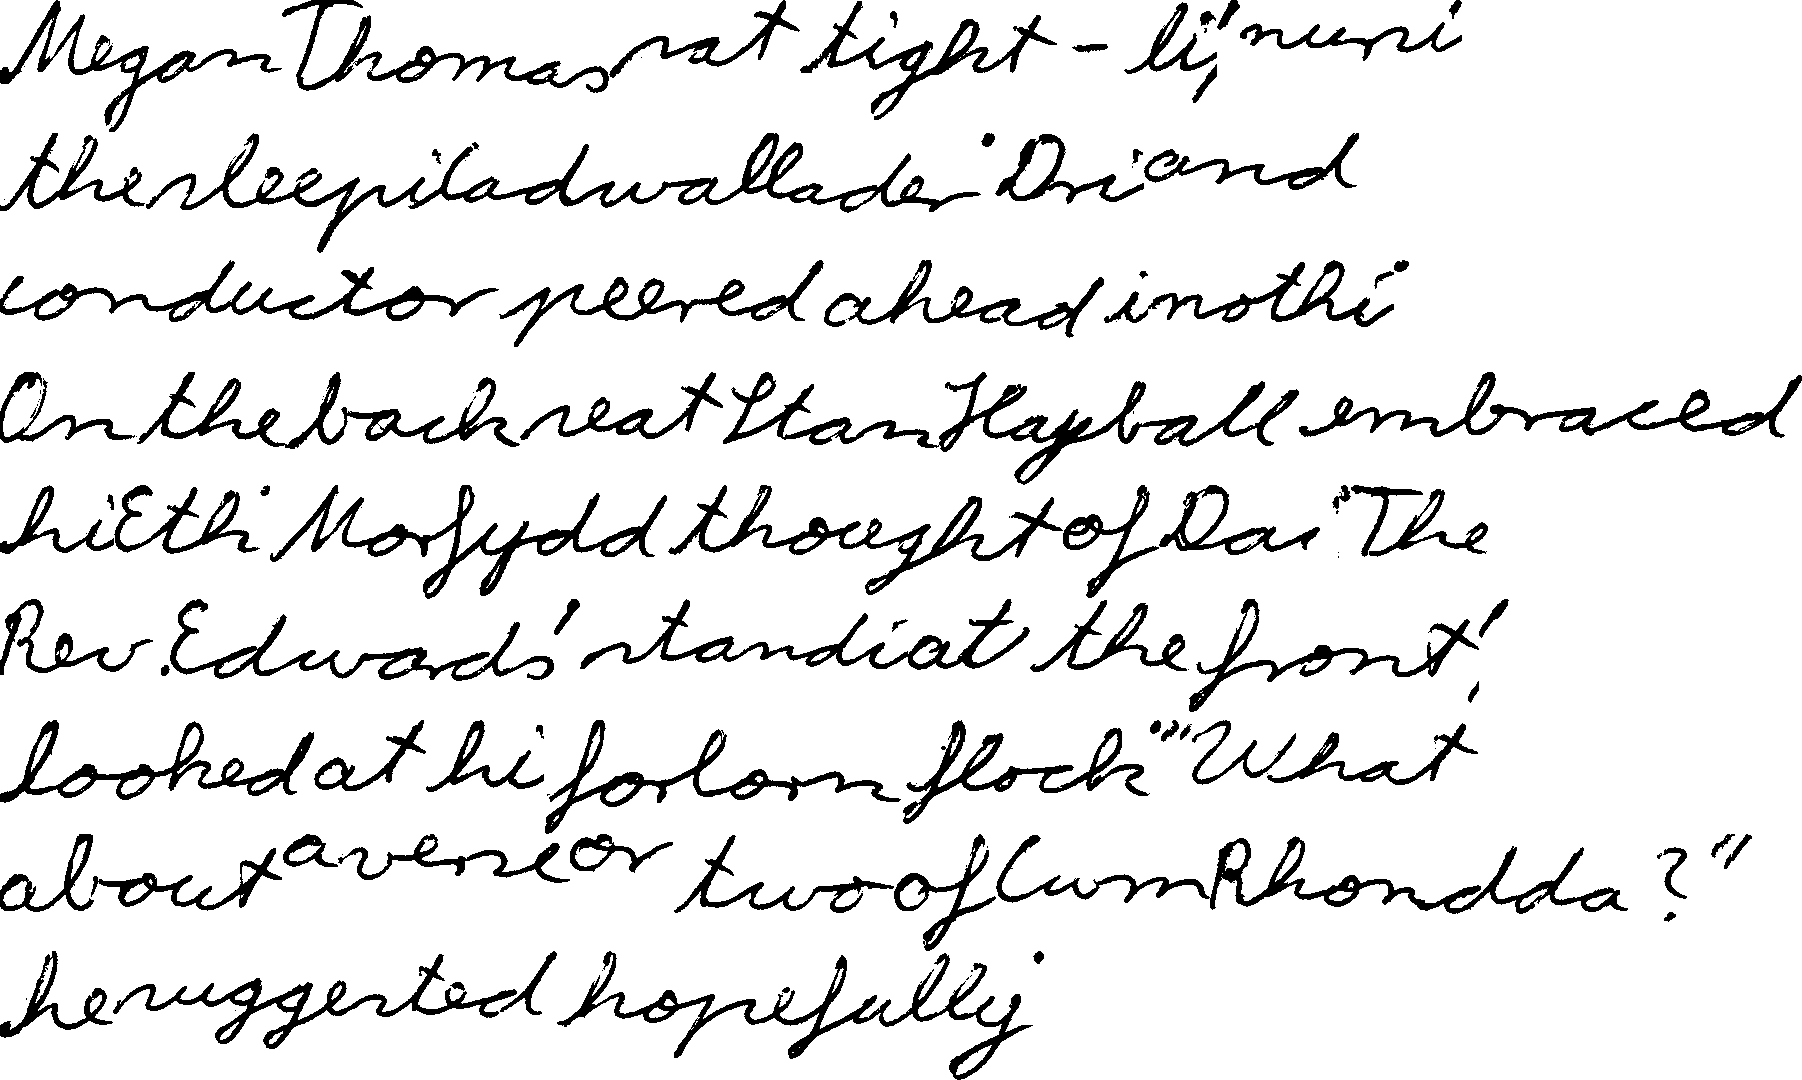 Megan Thomas sat tight - li, nursi
the sleepi Cadwallader. Dri and
conductor peered ahead inothi.
On the back seat Stan Hayball embraced
hi Ethi. Morfydd thought of Dai. The
Rev. Edwards, standi at the front,
looked at hi forlorn flock. "What
about a verse or two of Cwm Rhondda?"
he suggested hopefully.